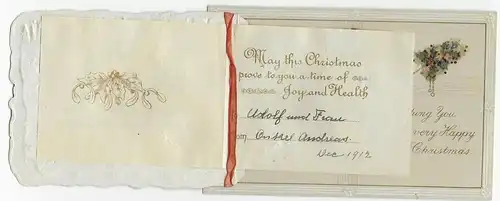 May this Christmas
prove to you a time of
Joy and Health
to Adolf und Frau
from Onkel Andreas.
Dec 1912
ing You
very Happy
Christmas